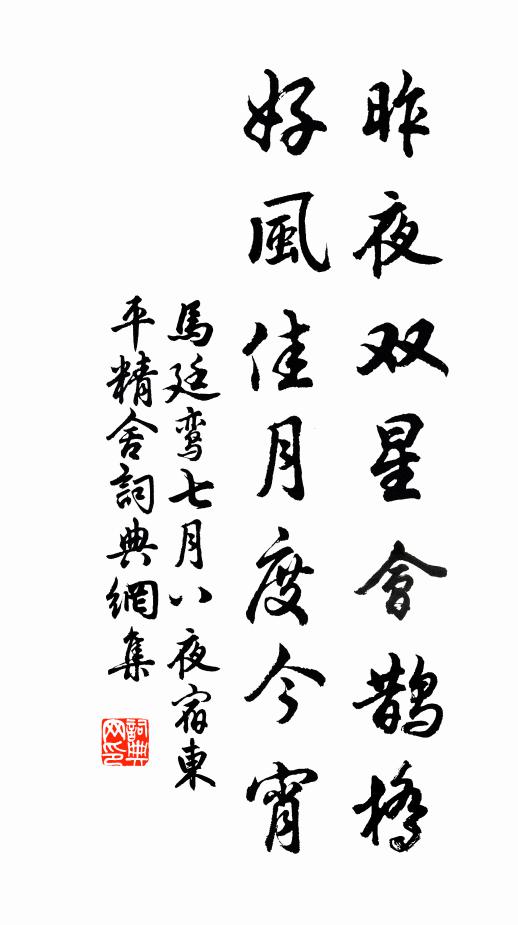 昨夜双星會鵲橋
好風佳月度今宵
馬廷鸾七月八夜宿東
平精舍詞典網集
詞典網印